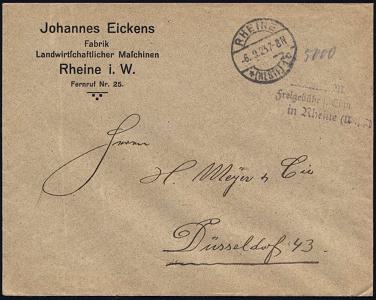 Johannes Eickens
Fabrik
Landwirtſchaftlicher Maſchinen
Rheine i. W.
Fernruf Nr. 25.
RHEINE
7-8N
(WESTF.)
5000
M
Freigebühr
in Rheine
Herren
H. Meyer & Cie
Düsseldorf 43